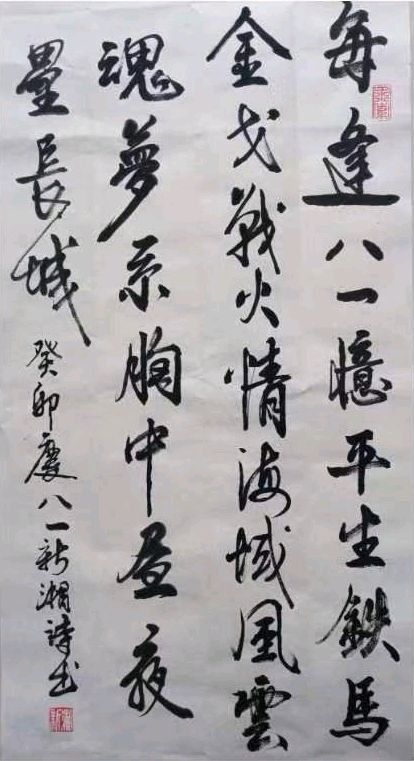 每逢八一憶平生鉄馬
金戈戰火情海域風雲
魂夢系胸中昼夜
壘長城
癸卯慶八一新湘詩书